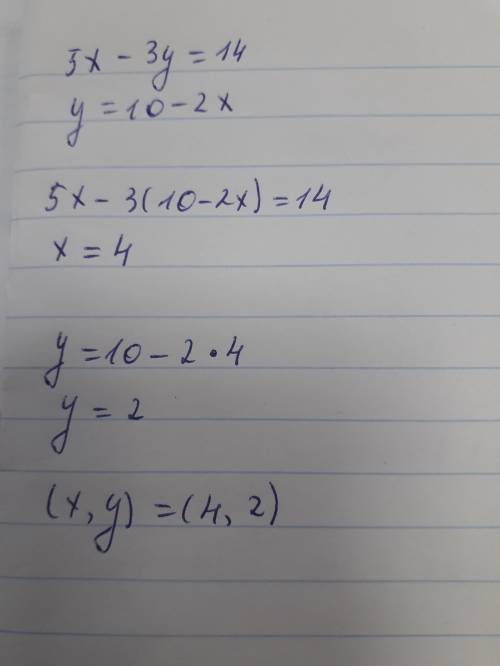 5x - 3y = 14
y = 10 - 2x
5x - 3(10 - 2x) = 14
x = 4
y = 10 - 2 • 4
y = 2
(x, y) = (4, 2)